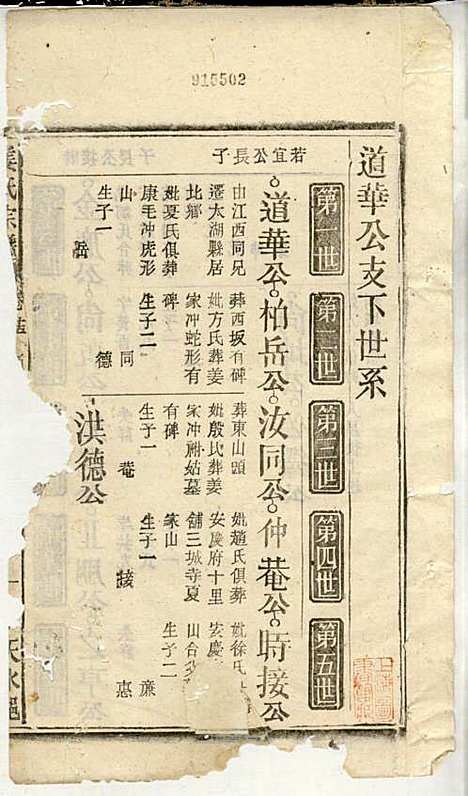 915502
道華公支下世系
若宜公長子
第一世
第二世
第三世
第四世
第五世
道華公
柏岳公
汝同公
仲菴公
時接公
由江西同兄
遷太湖縣居
比鄉
妣夏氏俱葬
康毛冲虎形
生子一
岳
葬西坂有碑
妣方氏葬姜
家冲蛇形有
碑
生子二
同
德
葬東山頭
妣殷氏葬姜
家冲祔姑墓
有碑
生子一
菴
妣趙氏俱葬
安慶府十里
舖三城寺夏
家山
生子一
接
妣徐氏
安慶
山合
生子二
廉
惠
洪德公
姜氏宗譜
天水郡